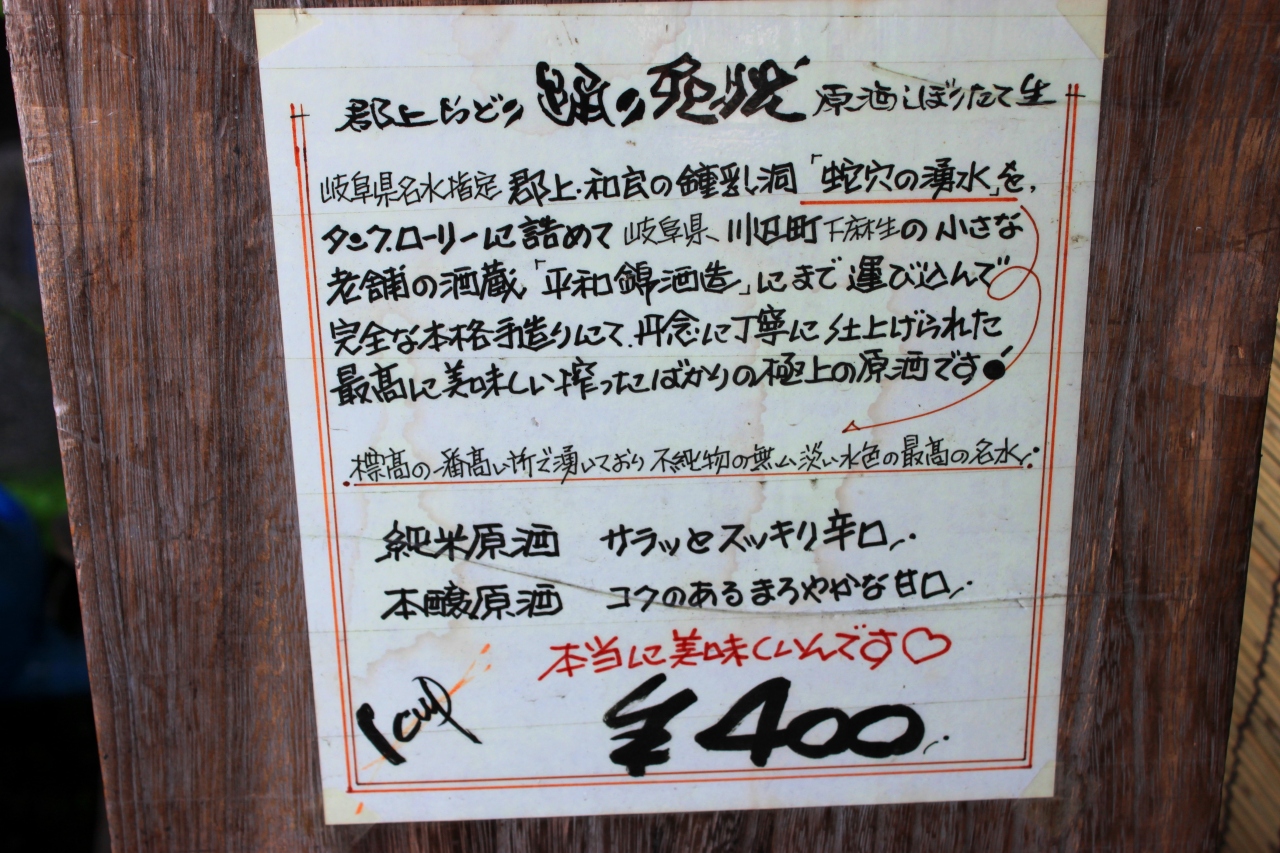 郡上おどり 踊の 原酒しぼりたて生
岐阜県名水指定 郡上・和良の鐘乳洞「蛇穴の湧水」を、
タンクローリーに詰めて 岐阜県、川辺町下麻生の小さな
老舗の酒蔵、「平和錦酒造」にまで運び込んで
完全な本格手造りにて、丹念に丁寧に仕上げられた
最高に美味しい搾ったばかりの極上の原酒です!
標高の一番高い所で湧いており不純物の無い淡い水色の最高の名水!
純米原酒 サラッとスッキリ辛口!
本醸原酒 コクのあるまろやかな甘口!
本当に美味しいんです♡
1cup ¥400!